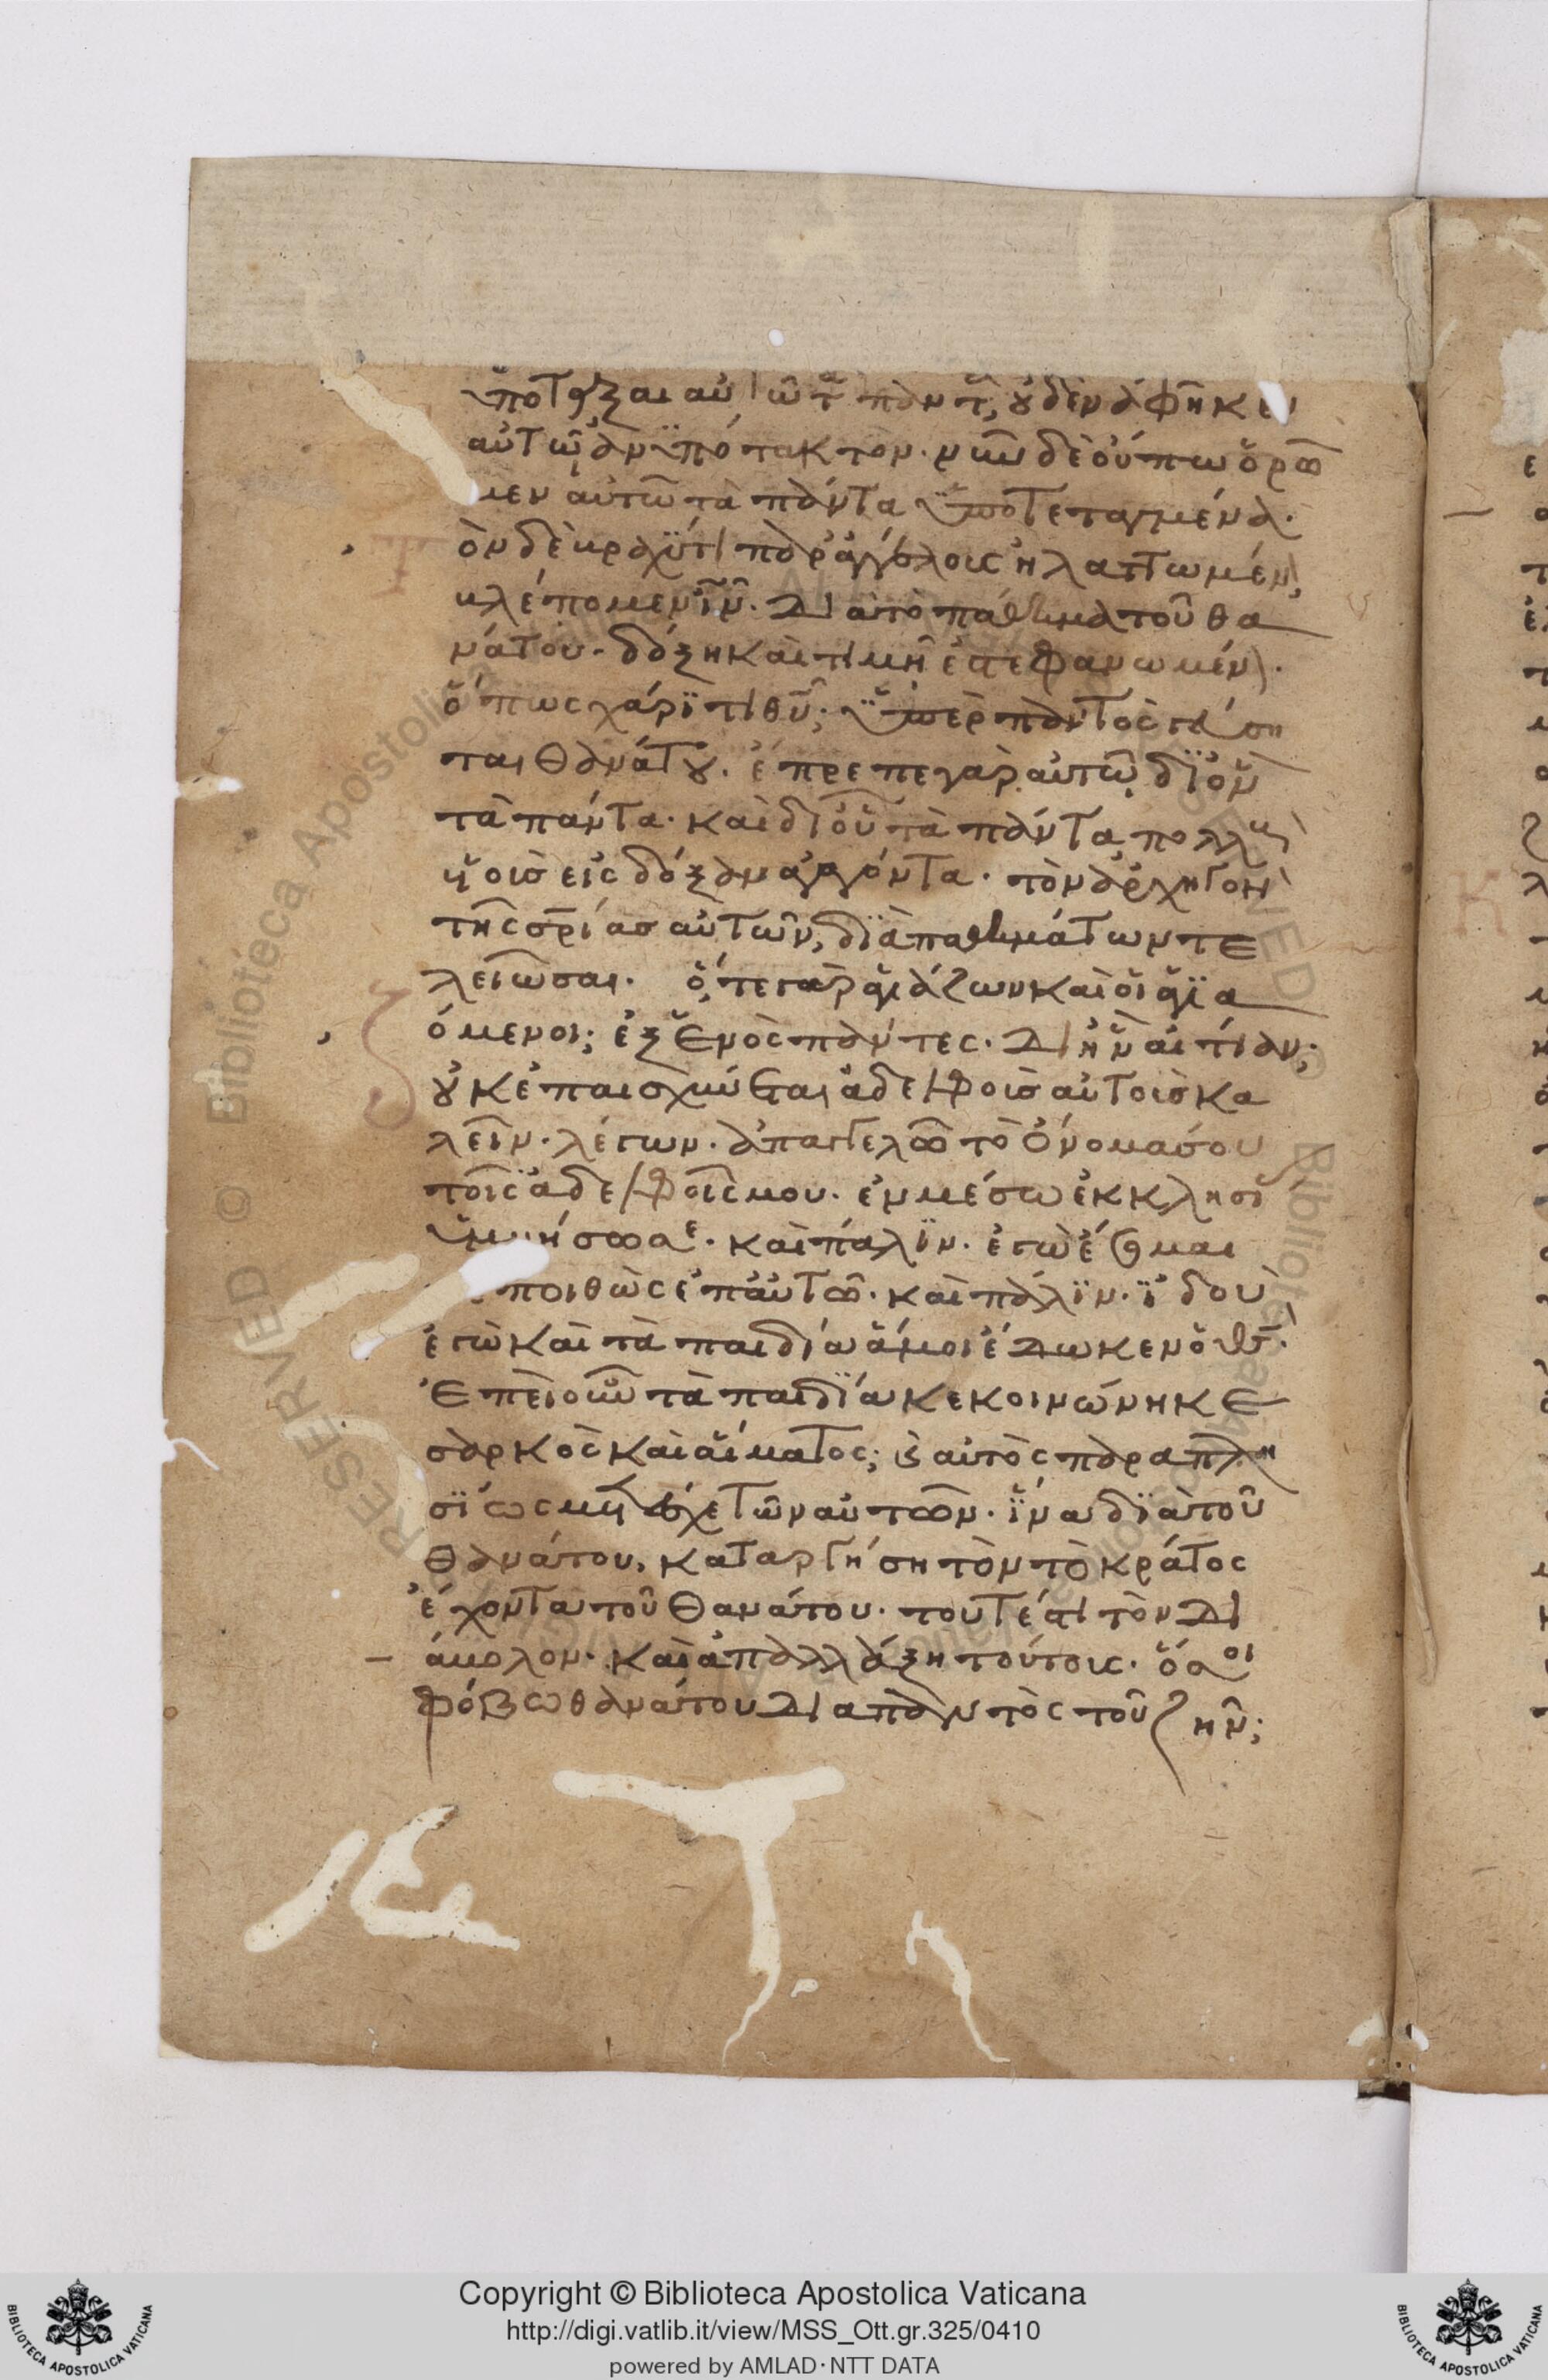 ὑποτάξαι αὐτῶ τὰ πάντ, οὐδὲν ἀφῆκεν
αὐτῶ ἀνϋπότακτον. νῦν δὲ οὔπω ὁρῶ
μεν αὐτῶ τὰ πάντα ὑποτεταγμένα.
ὸν δὲ βραχύτι παρ ἀγγέλοις ἠλαττωμέν
βλέπομεν ῑν. διὰ τὸ πάθημα τοῦ θα
νάτου. δόξη καὶ τιμῆ ἐστεφανωμέν.
ὅπως χάριτι θῡ; ὑπὲρ παντὸς γεύση
ται θανάτου. ἔπρεπε γὰρ αὐτῶ, δι ὃν
τὰ πάντα. καὶ δι οὗ τὰ πάντα, πολλοὺς
ὑοισ εἰς δόξαν ἀγαγόντα. τὸν ἀρχηγὸν
τῆς σρίασ αὐτῶν, διὰ παθημάτων τε
λειῶσαι. ὅ,τε γὰρ ἁγιάζων καὶ οἱ ἁγια
όμενοι; ἐξ ἑνὸς πάντες. δι ἣν αἰτίαν;
οὐκ ἐπαισχύνεται ἀδελφοισ αὐτοισ κα
λεῖν. λέγων. ἀπαγγελῶ τὸ ὄνομα σου
τοῖς ἀδελφοῖς μου. ἐν μέσω ἐκκλησί
ὑμνήσω σε. καὶ πάλιν. ἐγὼ ἔσομαι
ποιθὼς ἐπ αὐτῶ. καὶ πάλιν. ἰδοὺ
ἐγὼ καὶ τὰ παιδία ἅ μοι ἔδωκεν ὁ θς.
Ἐπεὶ οὖν τὰ παιδία κεκοινώνηκε
σαρκὸς καὶ αἵματος; καὶ αὐτὸς παραπλη
σίως μετέσχε τῶν αὐτῶν. ἵνα διὰ τοῦ
θανάτου, καταργήση τὸν τὸ κράτος
ἔχοντα τοῦ θανάτου. τουτέστι τὸν δι
άβολον. καὶ ἀπαλλάξη τούτοις. ὅσοι
φόβω θανάτου διαπαντὸς τοῦ ζῆν;
Copyright © Biblioteca Apostolica Vaticana
http://digi.vatlib.it/view/MSS_Ott.gr.325/0410
powered by AMLAD·NTT DATA